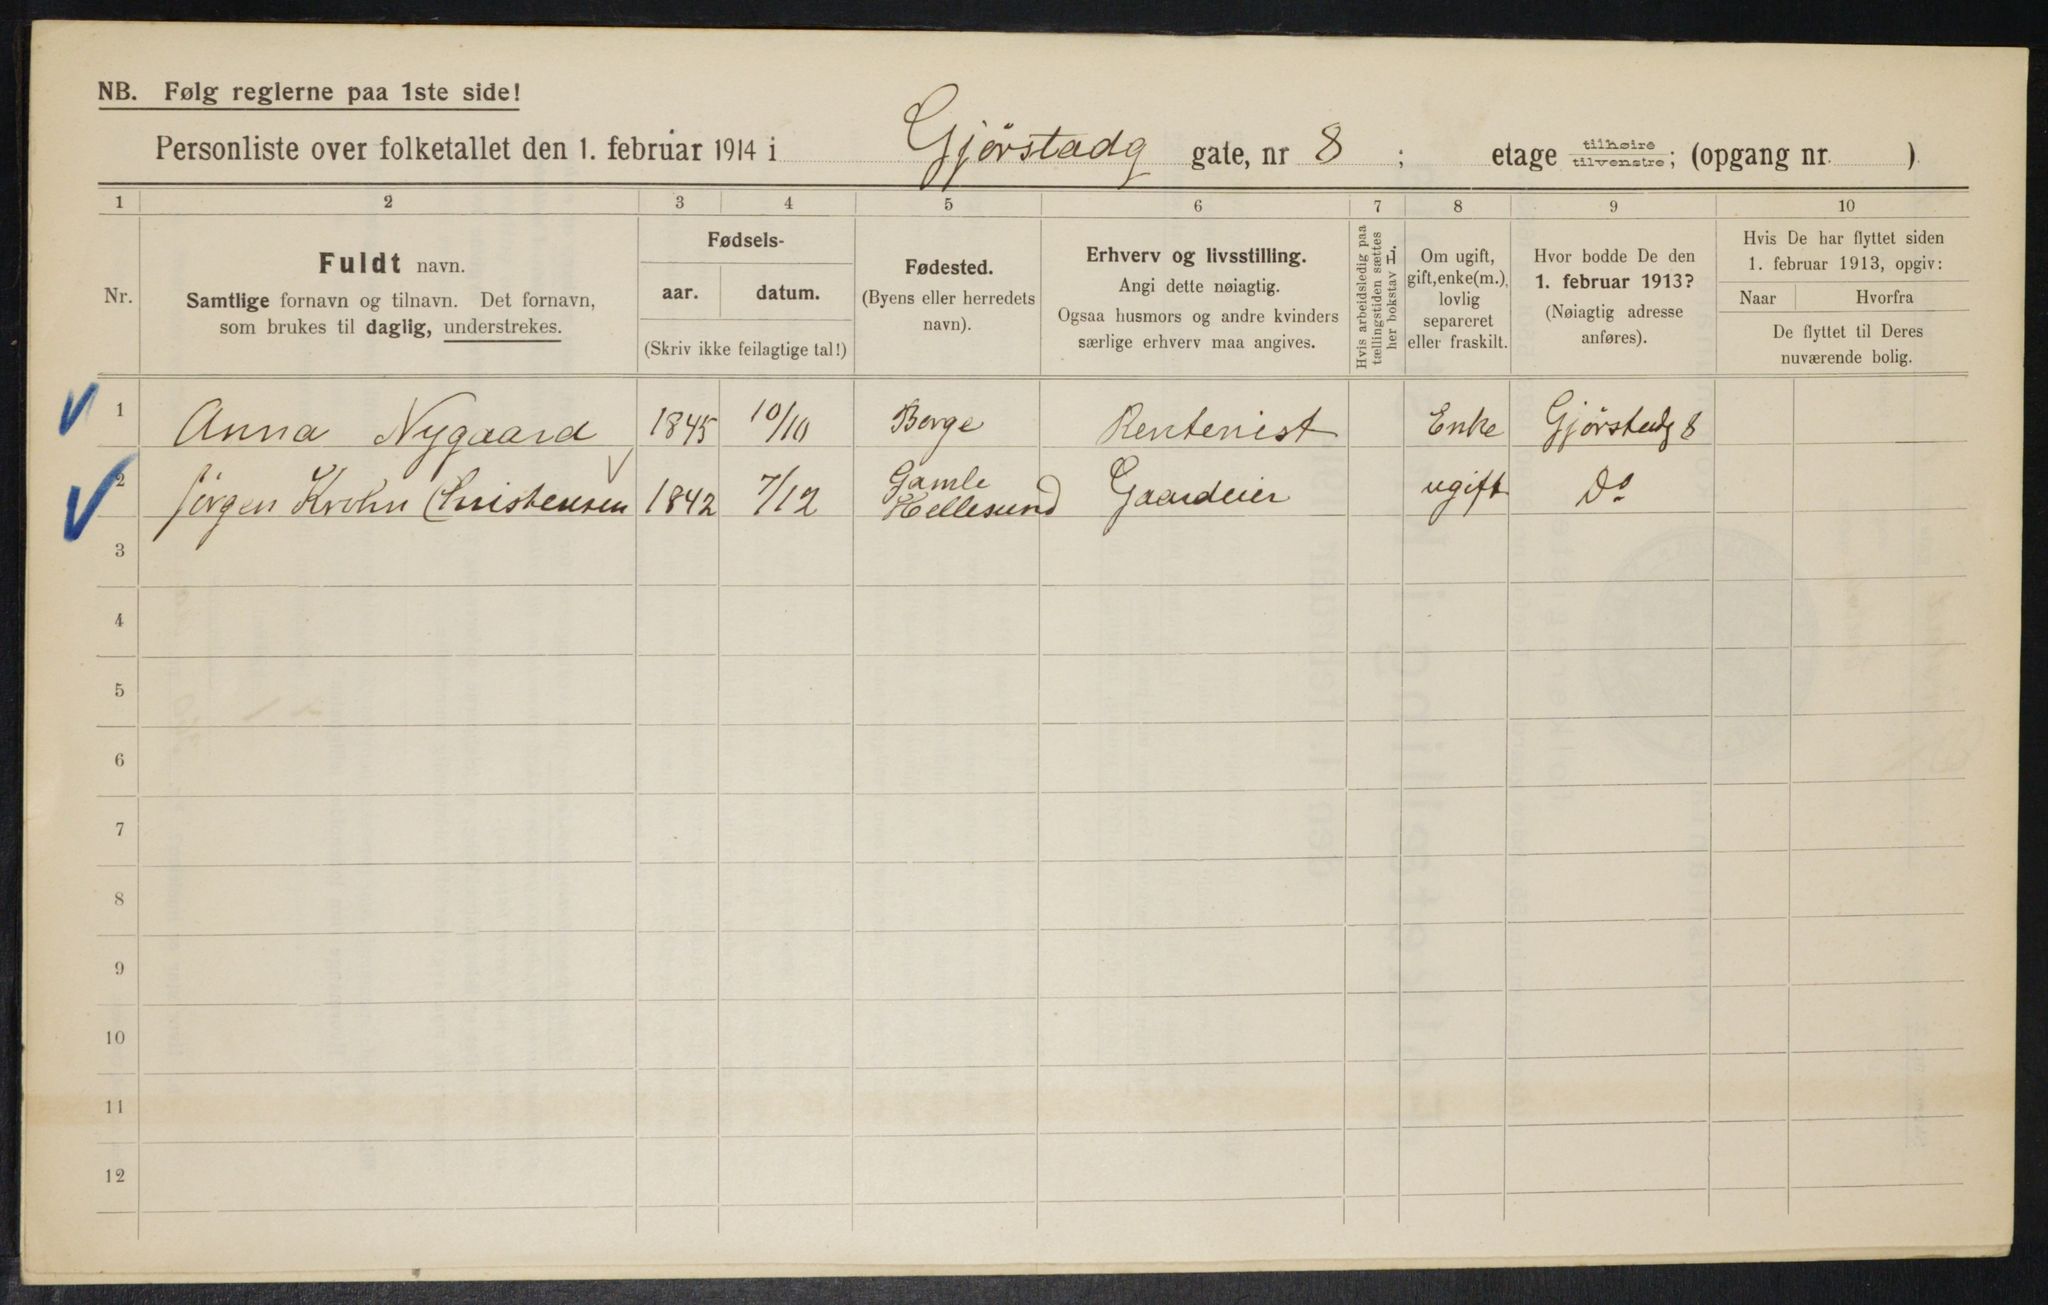 NB. Følg reglerne paa 1ste side!
Personliste over folketallet den 1. februar 1914 i Gjørstadg gate, nr 8 ; etage tilhøire tilvenstre; (opgang nr. )
1 2 3 4 5 6 7 8 9 10
Nr.
Fuldt navn.
Samtlige fornavn og tilnavn. Det fornavn,
som brukes til daglig, understrekes.
Fødsels-
aar. datum.
(Skriv ikke feilagtige tal!)
Fødested.
(Byens eller herredets
navn).
Erhverv og livsstilling.
Angi dette nøiagtig.
Ogsaa husmors og andre kvinders
særlige erhverv maa angives.
Hvis arbeidsledig paa
tællingstiden sættes
her bokstav L.
Om ugift,
gift, enke(m.),
lovlig
separeret
eller fraskilt.
Hvor bodde De den
1. februar 1913?
(Nøiagtig adresse
anføres).
Hvis De har flyttet siden
1. februar 1913, opgiv:
Naar Hvorfra
De flyttet til Deres
nuværende bolig.
1 Anna Nygaard 1845 10/10 Borge Rentenist Enke Gjørstadg 8
2 Jørgen Krohn Christensen 1842 7/12 Gamle Hellesund Gaardeier ugift Do
3
4
5
6
7
8
9
10
11
12